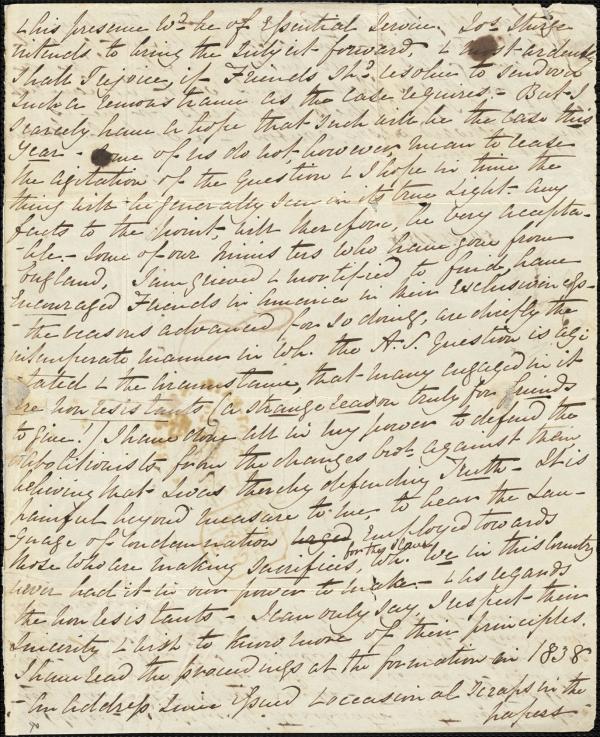 & his presence wd be of Essential Service. Jos Sturge
intends to bring the Subject forward & most ardently
shall I rejoice, if Friends shd resolve to send over
such a remonstrance as the case requires - But I
scarcely have a hope that such will be the case this
Year - Some of us do not, however, mean to cease
the agitation of the question & I hope in time the
thing will be generally seen in its true light - any
facts to the point, will therefore, be very accepta-
-ble. - Some of our Ministers who have gone from
England, I am grieved & mortified to find, have
encouraged Friends in America in their exclusiveness -
- the reasons advanced, for so doing, are chiefly the
intemperate manner in wh. the A.S. Question is agi
tated & the circumstance, that many engaged in it
are non resistants (a strange reason truly for friends
to give!) I have done all in my power to defend the
abolitionists from the charges brot against them
believing that I was thereby defending Truth - It is
painful beyond measure to me, to hear the Lan-
guage of condemnation urged employed towards
those who are making sacrifices, for the slave wh. we in this Country
never had it in our power to make. - & as regards
the non resistants - I can only say, I respect their
sincerity & wish to know more of their principles.
I have read the proceedings at the formation in 1838
- an address since issued & occasional scraps in the
papers